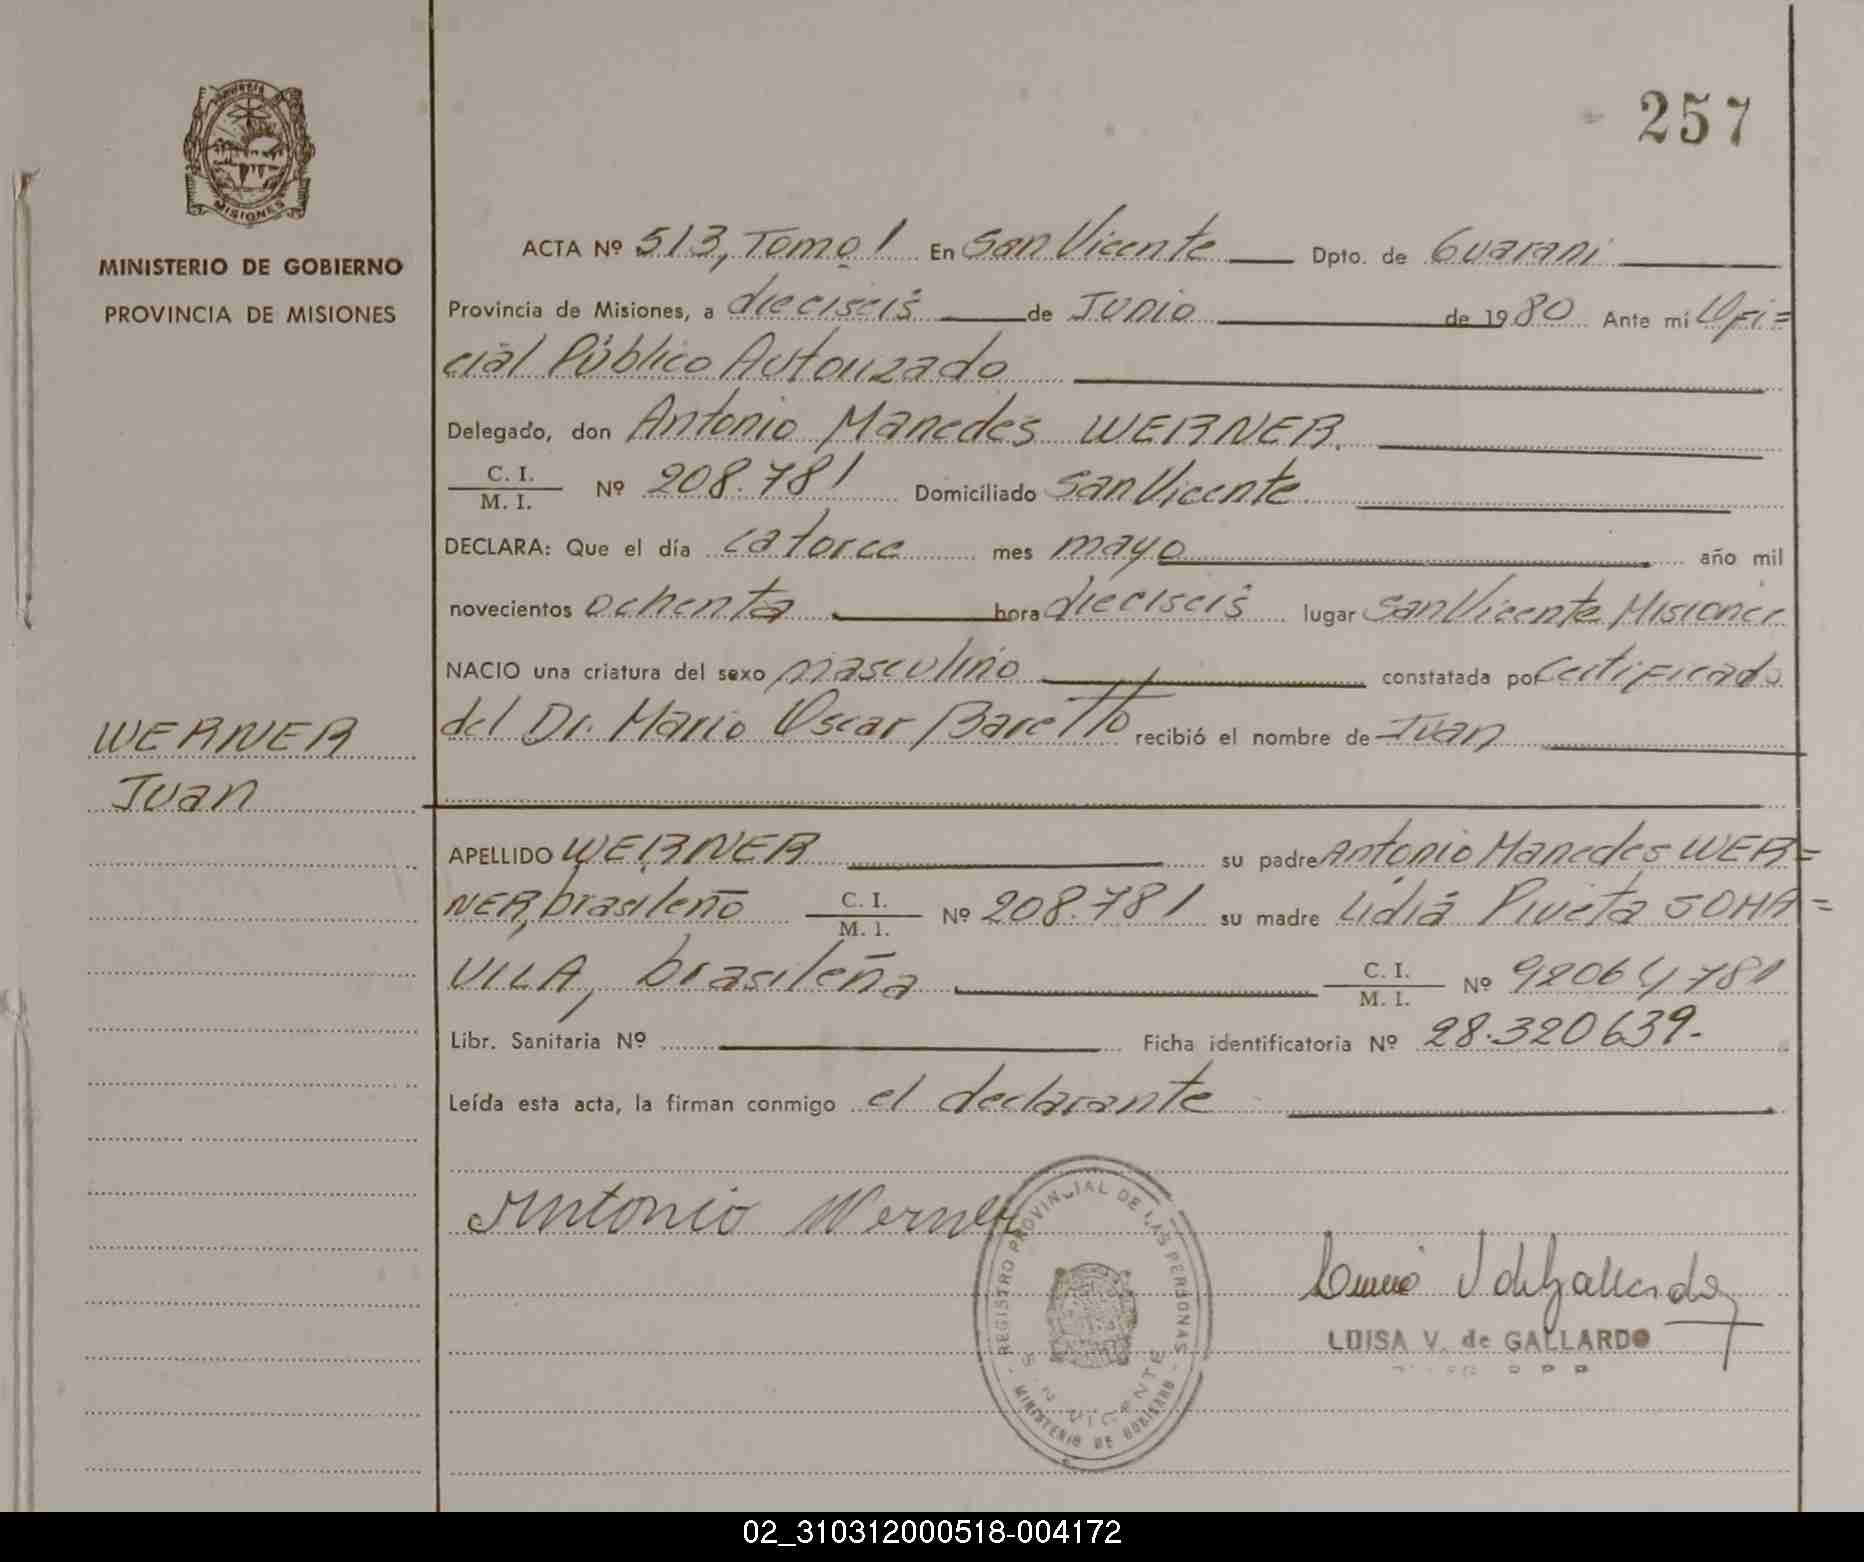 257
MISIONES
MINISTERIO DE GOBIERNO
PROVINCIA DE MISIONES
WERNER
Juan
ACTA Nº 513, Tomo 1 En San Vicente Dpto. de Guarani
Provincia de Misiones, a dieciseis de Junio de 1980 Ante mi Ofi=
cial Público Autorizado
Delegado, don Antonio Manedes WERNER.
C. I.
M. I. Nº 208.781 Domiciliado San Vicente
DECLARA: Que el día catorce mes mayo año mil
novecientos ochenta hora dieciseis lugar San Vicente Misiones
NACIO una criatura del sexo masculino constatada por Certificado
del Dr. Mario Oscar Baretto recibió el nombre de Juan
APELLIDO WERNER su padre Antonio Manedes WER=
NER, brasileño C. I. M. I. Nº 208.781 su madre Lidia Piveta SOMA=
VILA, brasileña C. I. M. I. Nº 92064781
Libr. Sanitaria Nº Ficha identificatoria Nº 28.320639.
Leída esta acta, la firman conmigo el declarante
Antonio Werner
REGISTRO PROVINCIAL DE LAS PERSONAS
VICENTE
MINISTERIO DE GOBIERNO
LUISA V. de GALLARDO
02_310312000518-004172